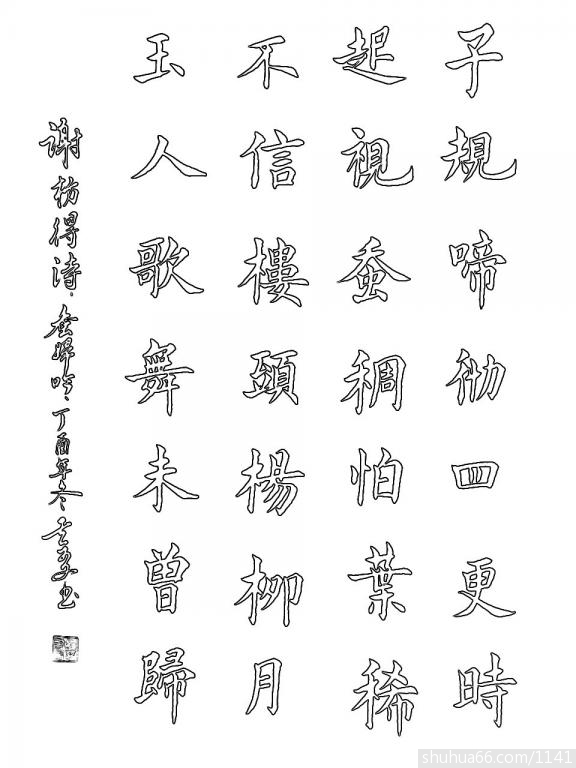 子規啼彻四更時
起視蚕稠怕葉稀
不信樓頭楊柳月
玉人歌舞未曾歸
谢枋得诗、蚕婦吟、丁酉年冬 书
shuhua66.com/1141